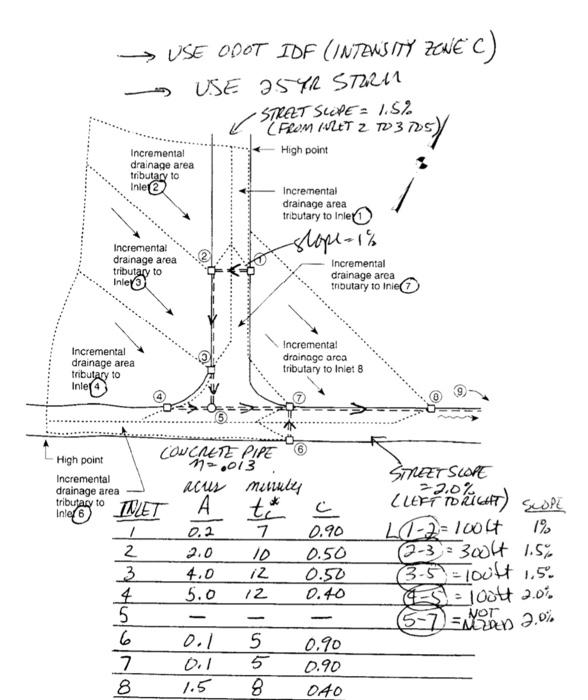 → USE ODOT IDF (INTENSITY ZONE C)
→ USE 25 YR STORM
STREET SLOPE = 1.5%
(FROM INLET 2 TO 3 TO 5)
High point
Incremental
drainage area
tributary to
Inlet 2
Incremental
drainage area
tributary to Inlet 1
slope = 1%
② ①
Incremental
drainage area
tributary to
Inlet 3
Incremental
drainage area
tributary to Inlet 7
Incremental
drainage area
tributary to Inlet 8
③
Incremental
drainage area
tributary to
Inlet 4
④ ⑤ ⑦ ⑧ ⑨
⑥
High point
Incremental
drainage area
tributary to
Inlet 6
CONCRETE PIPE
n = .013
STREET SLOPE
= 2.0%
(LEFT TO RIGHT)
acres minutes
INLET A tc* C SLOPE
1 0.2 7 0.90 L 1-2 = 100ft 1%
2 2.0 10 0.50 2-3 = 300ft 1.5%
3 4.0 12 0.50 3-5 = 100ft 1.5%
4 5.0 12 0.40 4-5 = 100ft 2.0%
5 — — — 5-7 = NOT NEEDED 2.0%
6 0.1 5 0.90
7 0.1 5 0.90
8 1.5 8 0.40